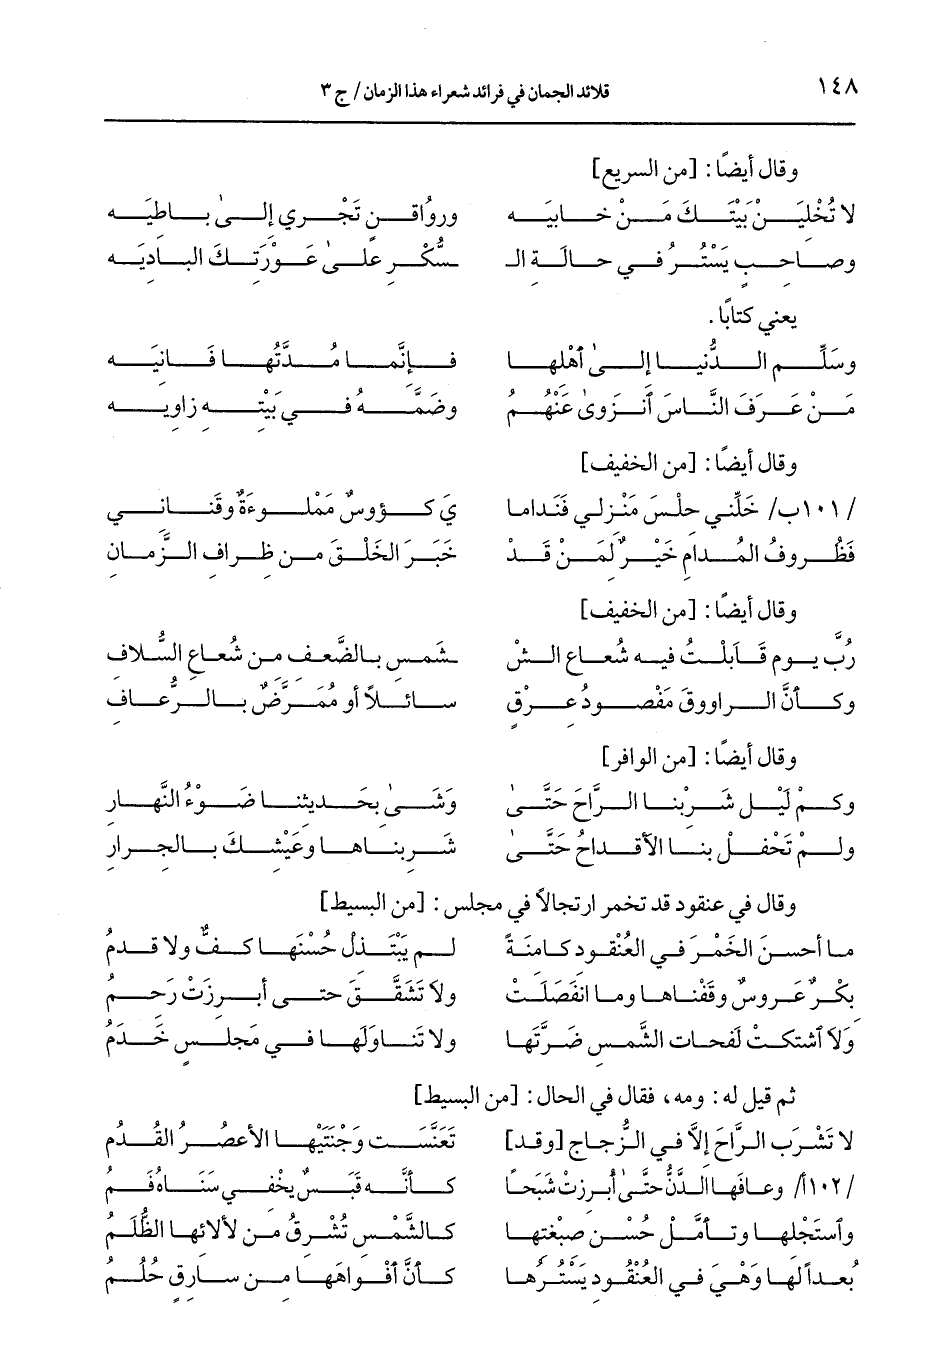 ١٤٨ قلائد الجمان في فرائد شعراء هذا الزمان/ ج ٣
وقال أيضًا: [من السريع]
لا تُخْلِيَنْ بَيْتَكَ مَنْ خَابِيَه ورُوَاقِنٍ تَجْري إلى باطِيَه
وصاحبٍ يَسْتُرُ في حالَةِ الـ ـسُّكْرِ على عَوْرَتِكَ البادِيَه
يعني كتابًا.
وسَلِّمِ الدُّنْيا إلى أَهْلِها فإنَّما مُدَّتُها فَانِيَه
مَنْ عَرَفَ النَّاسَ أنزوى عَنْهُمُ وضَمَّهُ في بَيْتِهِ زاوِيه
وقال أيضًا: [من الخفيف]
/١٠١ب/ خَلِّني حِلْسَ مَنْزِلي فَنَداما يَ كؤوسٌ مَمْلوءَةٌ وقَناني
فَظُروفُ المُدامِ خَيْرٌ لمَنْ قَدْ خَبَرَ الخَلْقَ من ظرافِ الزَّمانِ
وقال أيضًا: [من الخفيف]
رُبَّ يومٍ قَابلتُ فيه شُعاعَ الشْـ ـشَمسِ بالضَّعفِ من شُعاعِ السُّلافِ
وكأنَّ الراووقَ مَفْصودُ عِرْقٍ سائلاً أو مُمَرَّضٌ بالرُّعافِ
وقال أيضًا: [من الوافر]
وكمْ لَيْلٍ شَرِبْنا الرَّاحَ حَتَّى وَشَى بحَديثِنا ضَوْءُ النَّهارِ
ولمْ تَحْفِلْ بنا الأقْداحُ حَتَّى شَرِبْناها وعَيْشِكَ بالجرارِ
وقال في عنقود قد تخمر ارتجالاً في مجلس: [من البسيط]
ما أحسنَ الخَمْرَ في العُنْقودِ كامِنَةً لم يَبْتَذِلْ حُسْنَها كفٌّ ولا قدمُ
بِكْرٌ عَروسٌ وَقَفْناها وما انفَصَلَتْ ولا تَشَقَّقَ حتى أبرزتْ رَحِمُ
وَلا آشتكتْ لَفَحاتِ الشَّمسِ ضَرَّتِها ولا تَناوَلَها في مَجلسٍ خَدَمُ
ثم قيل له: ومه، فقال في الحال: [من البسيط]
لا تَشْرَبِ الرَّاحَ إلاَّ في الزُّجاجِ [وقد] تَعَنَّسَتْ وَجَنَتْها الأعصُرُ القُدُمُ
/١٠٢أ/ وعافها الدَّنُّ حتَّى أبرزتْ شَبَحًا كأنَّهُ قَبَسٌ يخْفي سَنَاهُ فَمُ
وآستَجْلِها وتأمَّلْ حُسْنَ صِبْغَتِها كالشَّمسِ تُشْرِقُ من لأْلائِها الظُّلَمُ
بُعداً لها وَهْيَ في العنقودِ يَسْتُرُها كأنَّ أفْواهَها من سارقٍ خُلِمُ